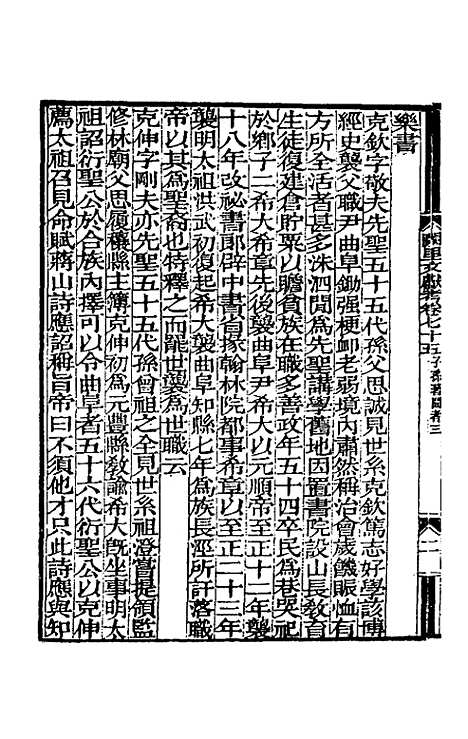 闕里文獻考卷七十五子孫著聞者三
二
樂書
克欽字敬夫先聖五十五代孫父思誠見世系克欽篤志好學該博
經史襲父職尹曲阜鋤强梗卹老弱境內肅然稱治會歲饑賑恤有
方所全活者甚多洙泗間爲先聖講學舊地因置書院設山長教育
生徒復建倉貯粟以贍貧族在職多善政年五十四卒民爲巷哭祀
於鄉子二希大希章先後襲曲阜尹希大以元順帝至正十二年襲
十八年改祕書郎辟中書省掾翰林院都事希章以至正二十三年
襲明太祖洪武初復起希大襲曲阜知縣七年爲族長涇所訐落職
帝以其爲聖裔也特釋之而罷世襲爲世職云
克伸字剛夫亦先聖五十五代孫曾祖之全見世系祖澄嘗提領監
修林廟父思履穰縣主簿克伸初爲元豐縣教諭希大旣坐事明太
祖詔衍聖公於合族內擇可以令曲阜者五十六代衍聖公以克伸
薦太祖召見命賦蔣山詩應詔稱旨帝曰不須他才只此詩應與知